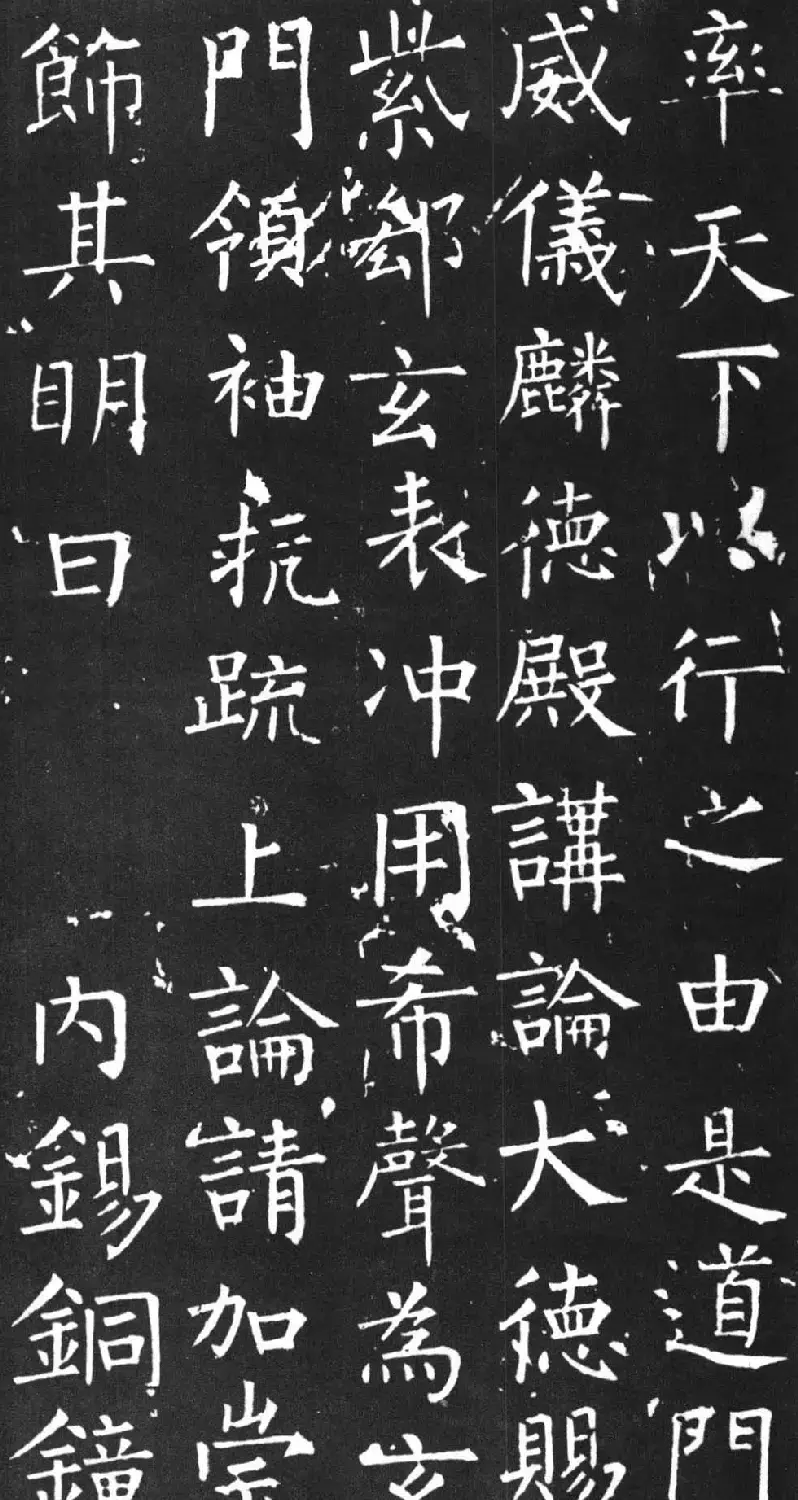 率天下以行之由是道門
威儀麟德殿講論大德賜
紫鄒玄表冲用希聲為玄
門領袖抗疏上論請加崇
飾其明日內錫銅鐘